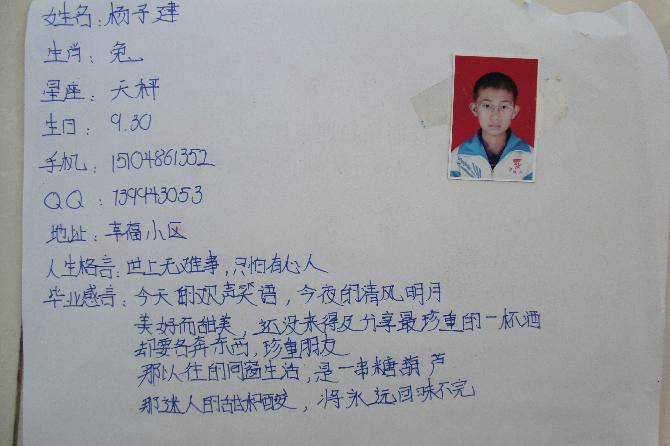 姓名：杨子建
生肖：兔
星座：天枰
生日：9.30
手机：15104861352
QQ：739943053
地址：幸福小区
人生格言：世上无难事，只怕有心人
毕业感言：今天的欢声笑语，今夜的清风明月
美好而甜美，还没来得及分享最珍重的一杯酒
却要各奔东西，珍重朋友
那以往的同窗生活，是一串糖葫芦
那迷人的甜和酸，将永远回味不完